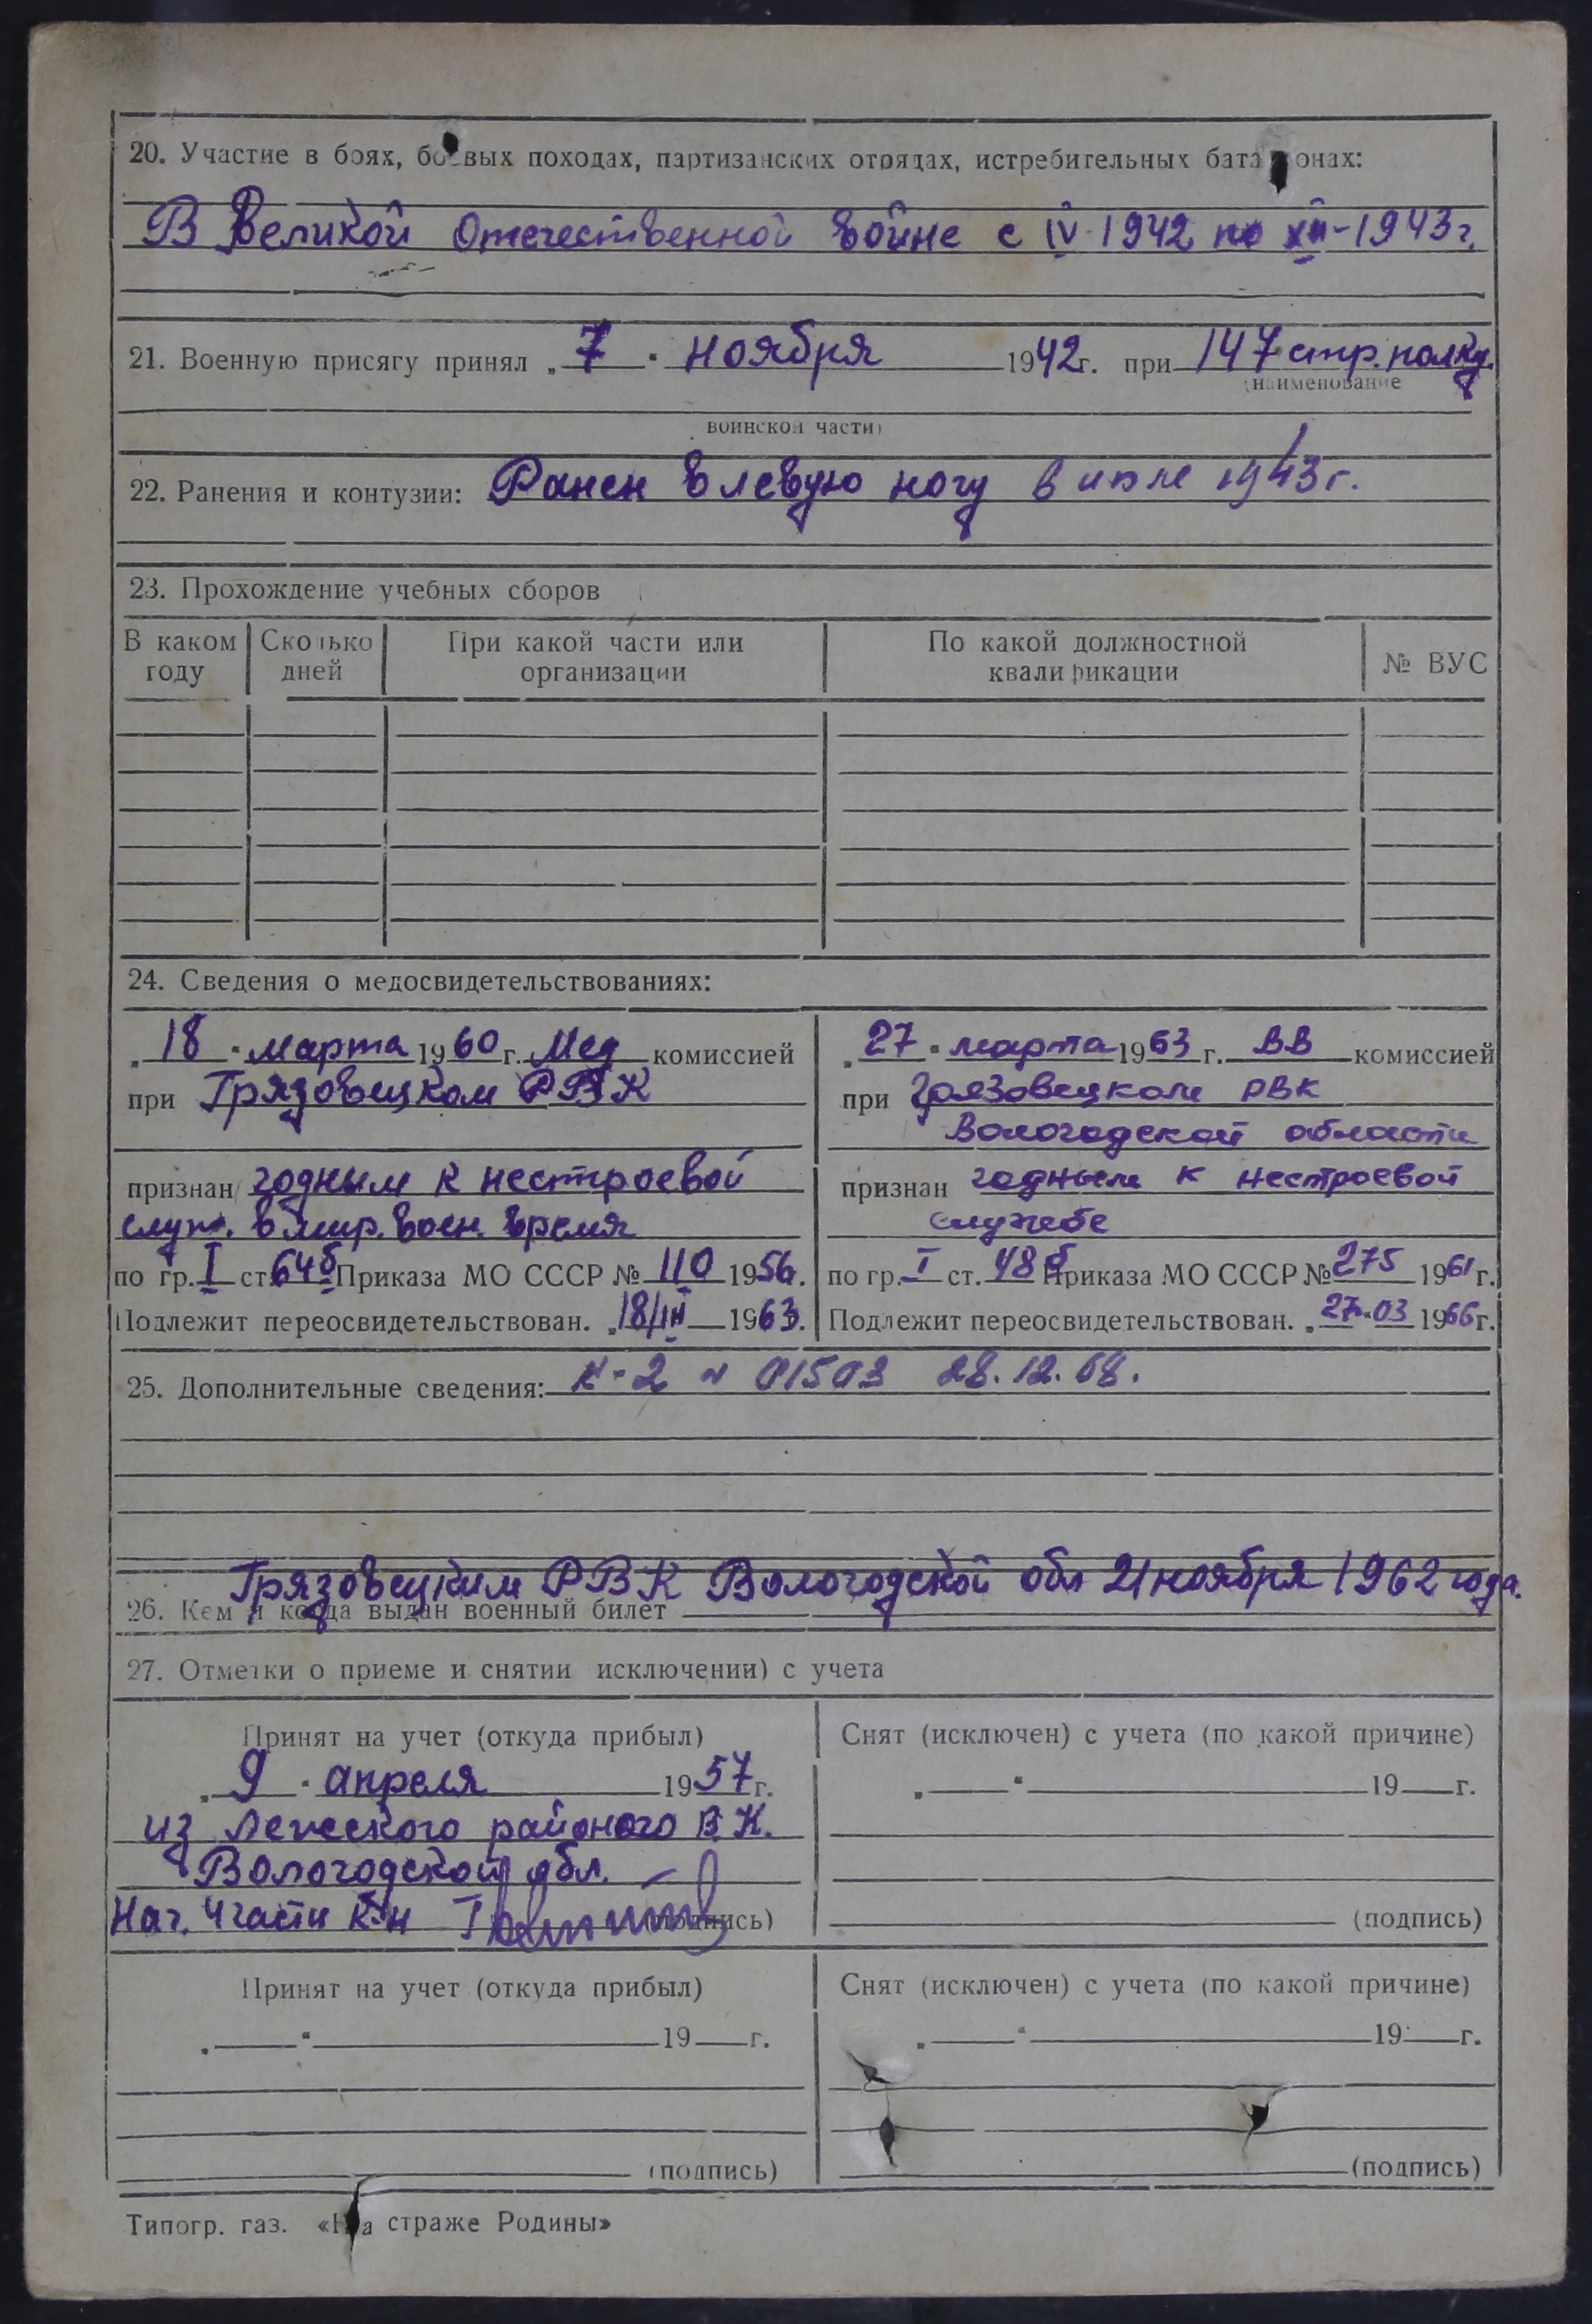 20. Участие в боях, боевых походах, партизанских отрядах, истребительных батальонах:
В Великой Отечественной войне с IV-1942 по XII-1943г.
21. Военную присягу принял „7“ ноября 1942г. при 147 стр. полку.
(наименование
воинской части)
22. Ранения и контузии: Ранен в левую ногу в июле 1943г.
23. Прохождение учебных сборов
В каком году | Сколько дней | При какой части или организации | По какой должностной квалификации | № ВУС
24. Сведения о медосвидетельствованиях:
„18“ марта 1960г. Мед комиссией
при Грязовецком РВК
признан годным к нестроевой
служ. в мир. воен. время
по гр. I ст. 64б Приказа МО СССР № 110 1956г.
Подлежит переосвидетельствован. „18/III 1963.
„27“ марта 1963 г. ВВ комиссией
при Грязовецком РВК
Вологодской области
признан годным к нестроевой
службе
по гр. I ст. 48б Приказа МО СССР № 275 1961г.
Подлежит переосвидетельствован. „27“ 03 1966г.
25. Дополнительные сведения: 28.12.68.
Грязовецким РВК Вологодской обл 21 ноября 1962 года.
26. Кем и когда выдан военный билет
27. Отметки о приеме и снятии исключении) с учета
Принят на учет (откуда прибыл)
„9“ апреля 1957г.
из Лежского районого В.К.
Вологодской обл.
Нач. 4 части к-н
(подпись)
Снят (исключен) с учета (по какой причине)
„ “ 19 г.
(подпись)
Принят на учет (откуда прибыл)
„ “ 19 г.
(подпись)
Снят (исключен) с учета (по какой причине)
„ “ 19 г.
(подпись)
Типогр. газ. «На страже Родины»